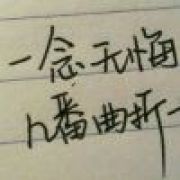 一念无悔
几番曲折一